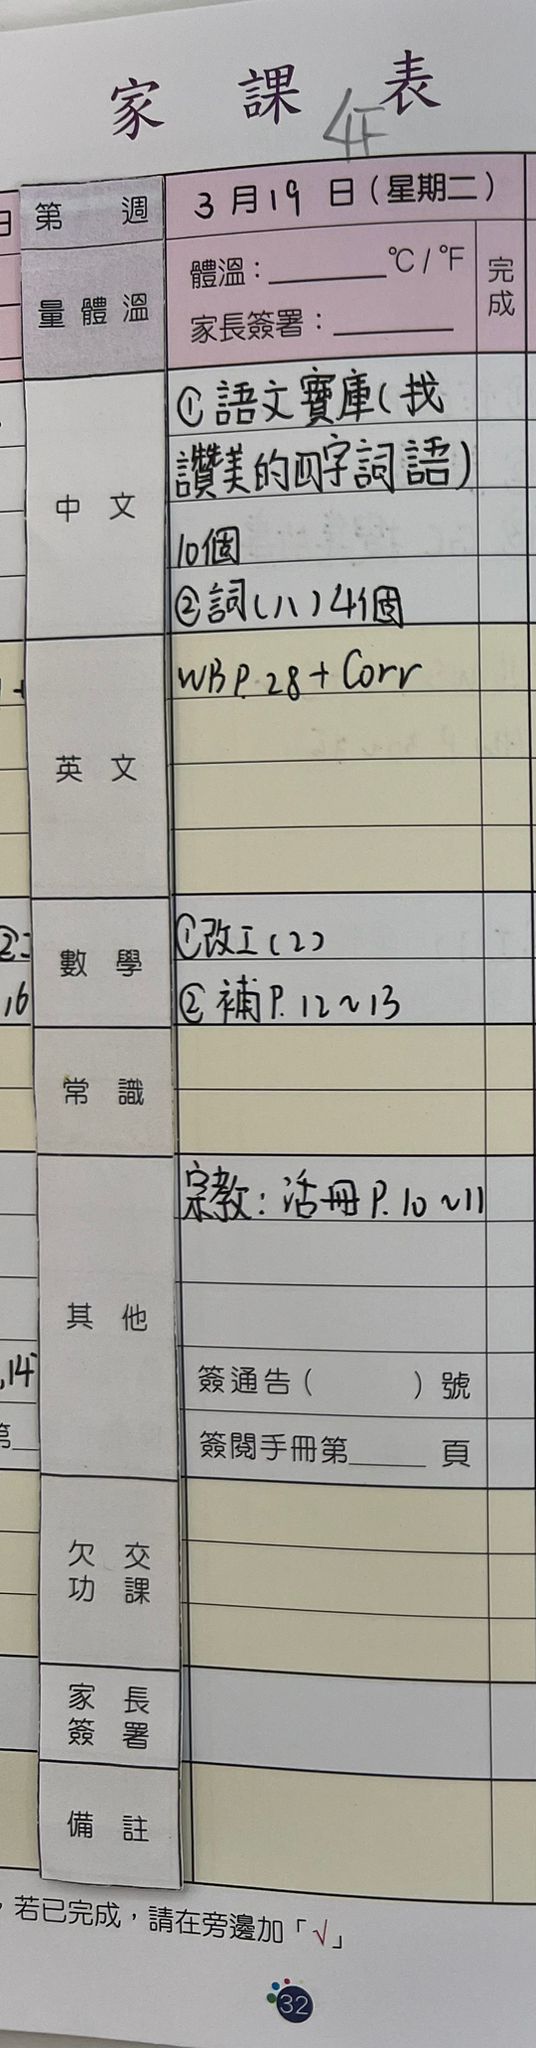 家課表
4F
第 週
3月19日(星期二)
量體溫
體溫：______℃/℉
家長簽署：______
完成
中文
①語文寶庫(找
讚美的四字詞語)
10個
②詞(八)4個
英文
WB P.28+Corr
數學
①改工(2)
②補P.12~13
常識
其他
宗教：活冊P.10~11
簽通告( )號
簽閱手冊第______頁
欠交功課
家長簽署
備註
，若已完成，請在旁邊加「√」
32